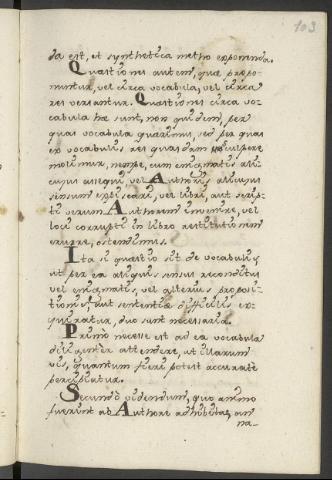 103
da est, et synthetica metho exponenda.
Quæstiones autem, quæ propo-
nuntur, vel circa vocabula, vel circa
res versantur. Quæstiones circa vo-
cabula hæ sunt, non quidem, per
quas vocabula quærimus, sed per quas
ex vocabulis res quasdam
molimur, nempe, cum enigmatis ali-
cujus assequi, vel Authoris alicujus
sensum explicari, vel libri, aut scrip-
ti verum Authorem invenire, vel
loci corrupti in libro restitutionem
eruere, ostendimus.
Ita si quæstio sit de vocabulis
ut per ea aliquis sensus reconditus
vel enigmatis, vel alterius proposi-
tionis, aut sententia difficilis ex-
quiratur, duo sunt necessaria.
Primò necesse est ad ea vocabula
diligenter attendere, ut illarum
vis, quantum fieri potest accuratè
percipiatur.
Secundò videndum, quo animo
fuerint ab Authore adhibita, an
na-